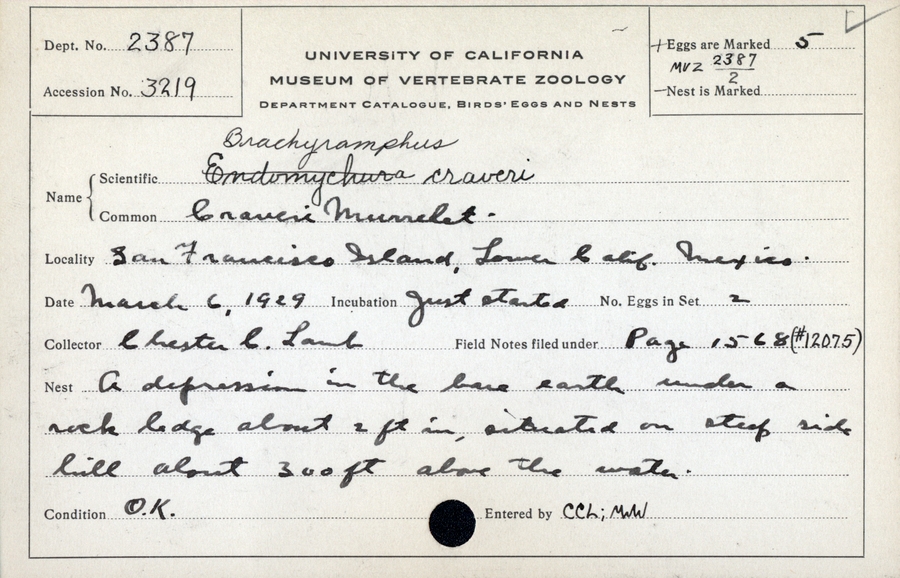 Dept. No. 2387
Accession No. 3219
UNIVERSITY OF CALIFORNIA
MUSEUM OF VERTEBRATE ZOOLOGY
DEPARTMENT CATALOGUE, BIRDS' EGGS AND NESTS
+Eggs are Marked 5
MVZ 2387/2
—Nest is Marked
Brachyramphus
Name { Scientific Endomychura craveri
Common Craveri Murrelet.
Locality San Francisco Island, Lower Calif. Mexico.
Date March 6, 1929 Incubation Just started No. Eggs in Set 2
Collector Chester C. Lamb Field Notes filed under Page 1568 (#12075)
Nest A depression in the bare earth under a
rock ledge about 2 ft in, situated on steep side
hill about 300 ft above the water.
Condition O.K. Entered by CCL; MW